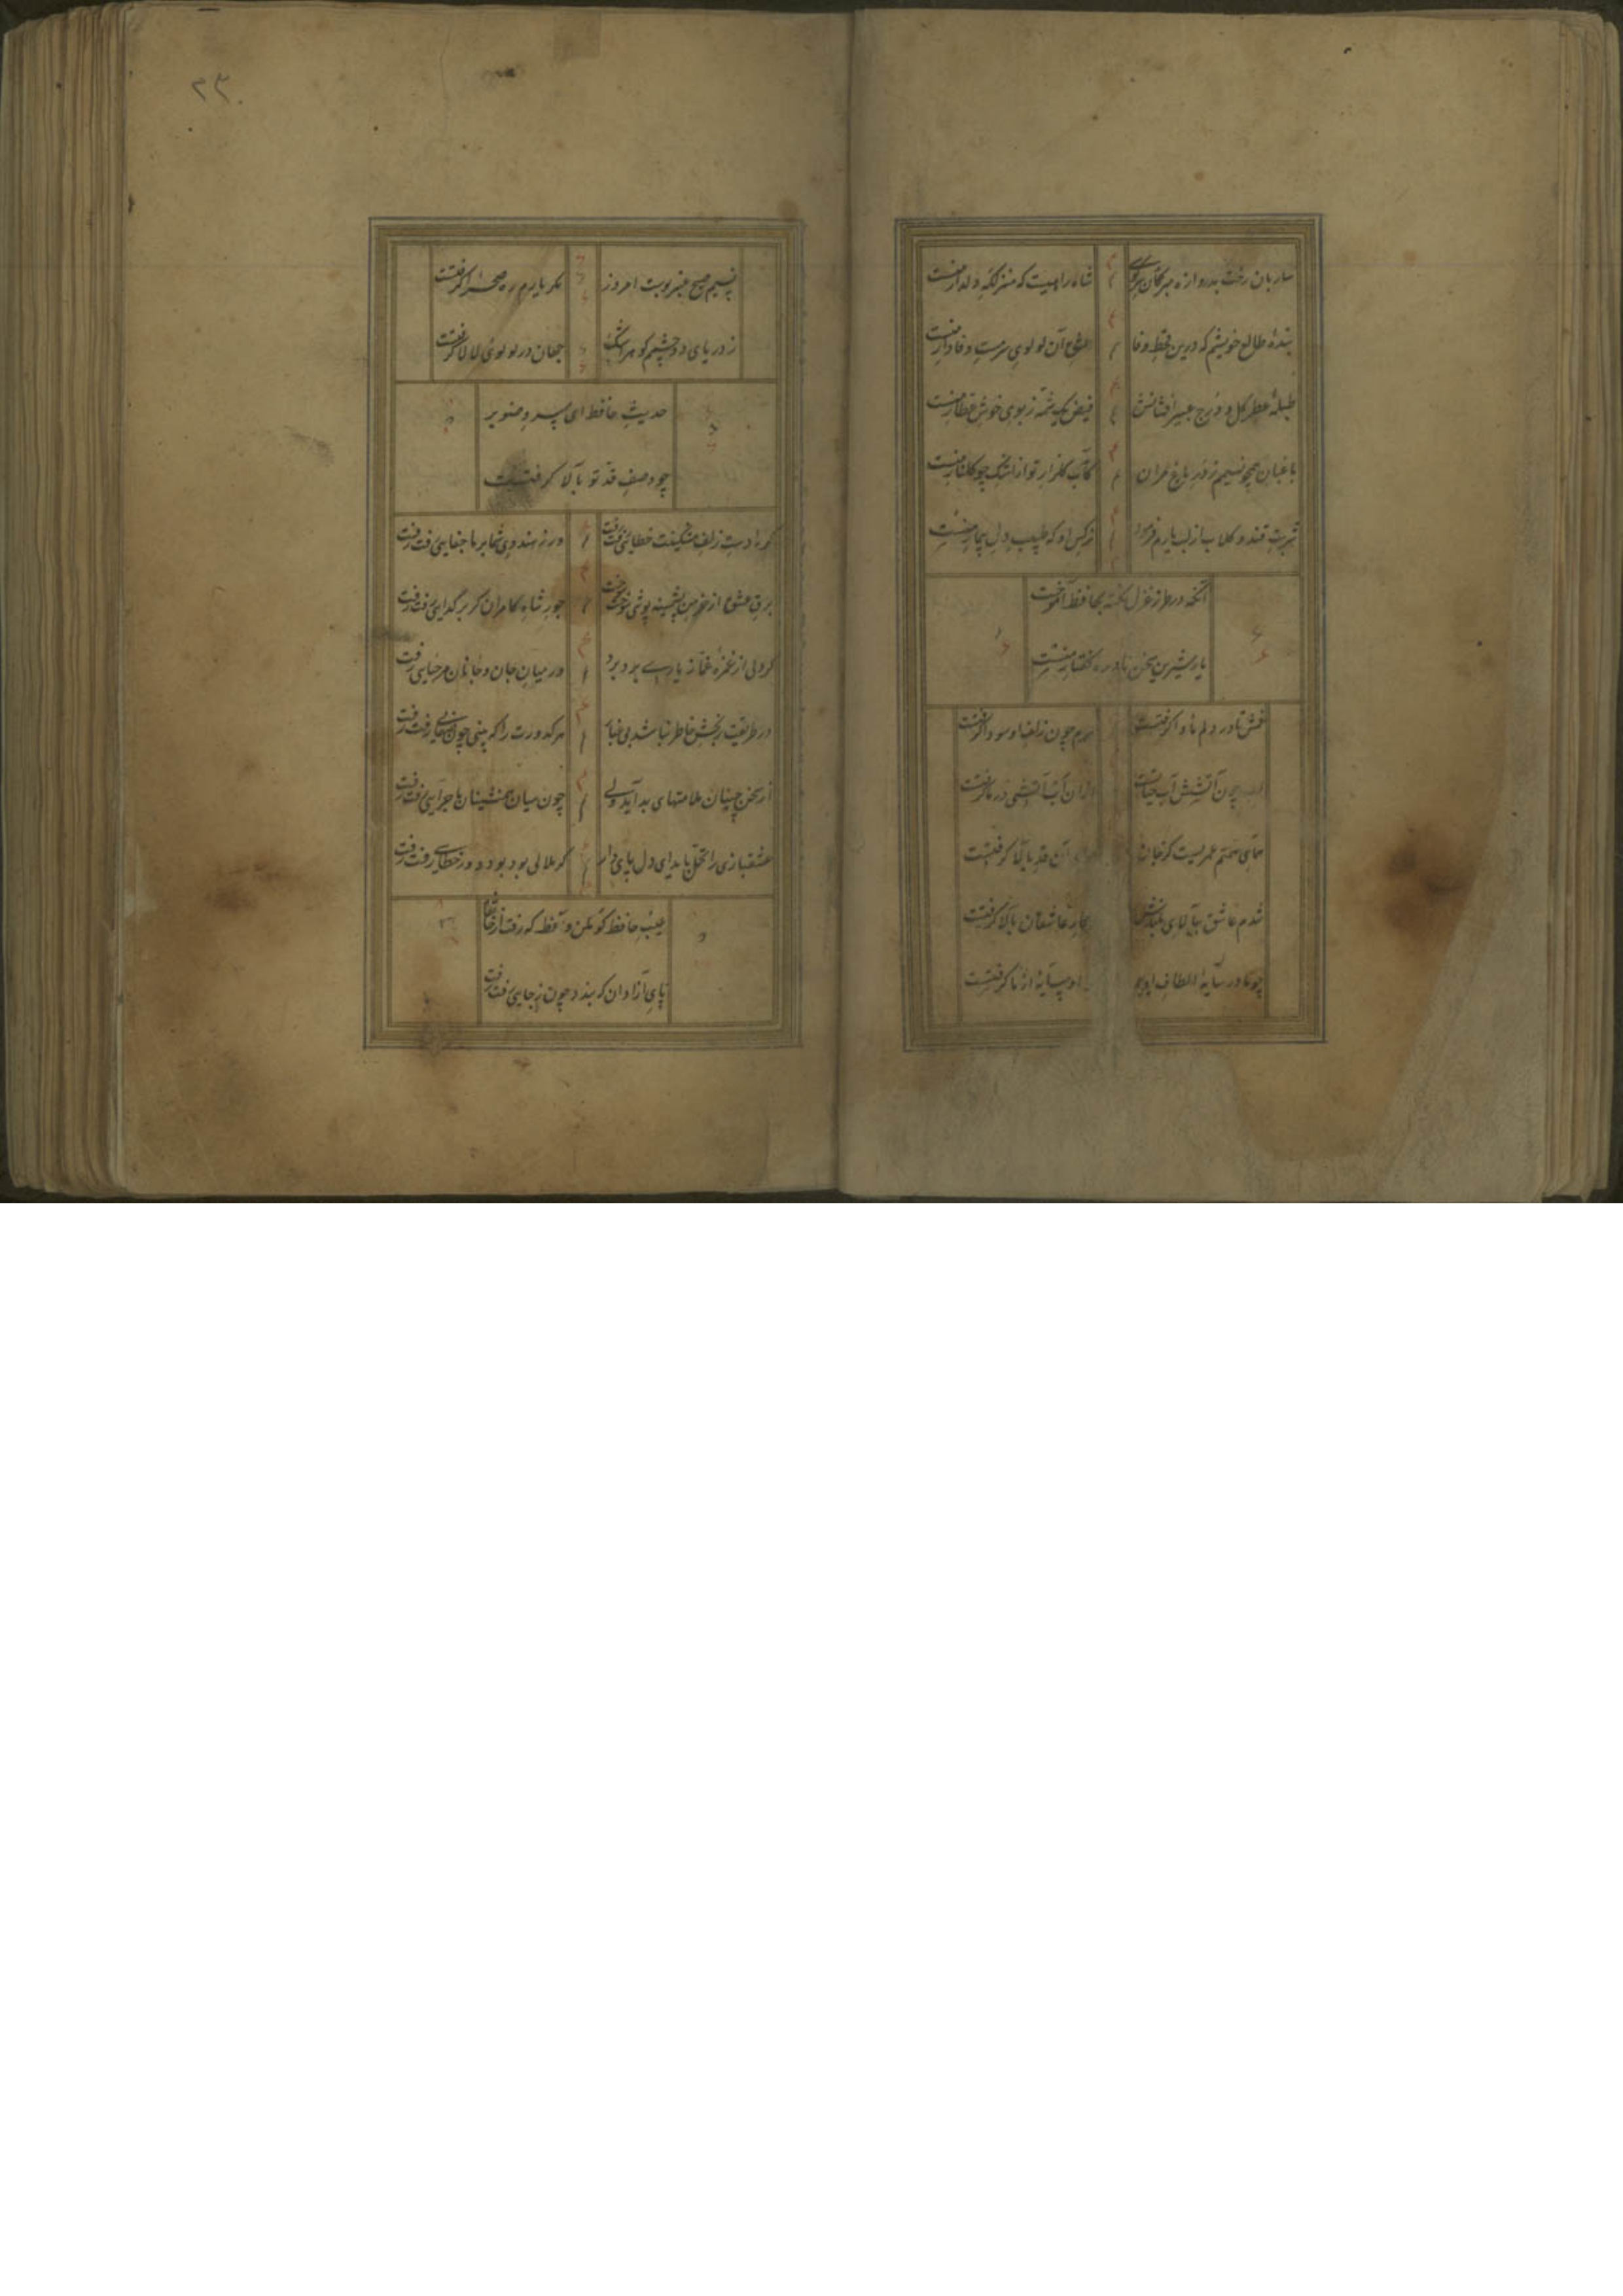 ساربان رخت بدروازه مبر کان سر کوی
شاه راهیست که منزلگه دلدار منست
بنده طالع خویشم که درین قحط وفا
عشق آن لولوی سرمست وفادار منست
طبله عطر گل و درج عبیر افشانش
فیض یک شمه ز بوی خوش عطار منست
باغبان همچو نسیم ز در باغ مران
کآب گلزار تو از اشک چو گلنار منست
شربت قند و گلاب از لب یارم فرمود
نرگس او که طبیب دل بیمار منست
آنکه در طرز غزل نکته بحافظ آموخت
یار شیرین سخن نادره گفتار منست
غمش تا در دلم ماوا گرفتست
سرم چون زلف او سودا گرفتست
چون آتشش آب حیاتست
ازان آب آتشی در ما گرفتست
همای همتم عمریست کز جان
آن قد بالا گرفتست
شدم عاشق ببالای بلندش
کار عاشقان بالا گرفتست
چو ما در سایه الطاف اویم
او سایه از ما گرفتست
نسیم صبح عنبر بوست امروز
مگر یارم ره صحرا گرفتست
ز دریای دو چشمم گوهر اشک
جهان در لولوی لالا گرفتست
حدیث حافظ ای سرو صنوبر
چو وصف قد تو بالا گرفتست
گر ز دست زلف مشکینت خطائی رفت رفت
ور ز هندوی شما بر ما جفایی رفت رفت
برق عشق ار خرمن پشمینه پوشی سوخت سوخت
جور شاه کامران گر بر گدایی رفت رفت
گر دلی از غمزه غماز یاری برد برد
در میان جان و جانان ماجرایی رفت
در طریقت رنجش خاطر نباشد می بیار
هر کدورت را که بینی چون صفایی رفت رفت
از سخن چینان ملامتهای بد آید ولی
چون میان همنشینان ماجرایی رفت رفت
عشقبازی را تحمل باید ای دل پای دار
گر ملالی بود بود و ور خطایی رفت رفت
عیب حافظ گو مکن واعظ که رفت از خانقاه
پای آزادان که بندد چون ز جایی رفت رفت